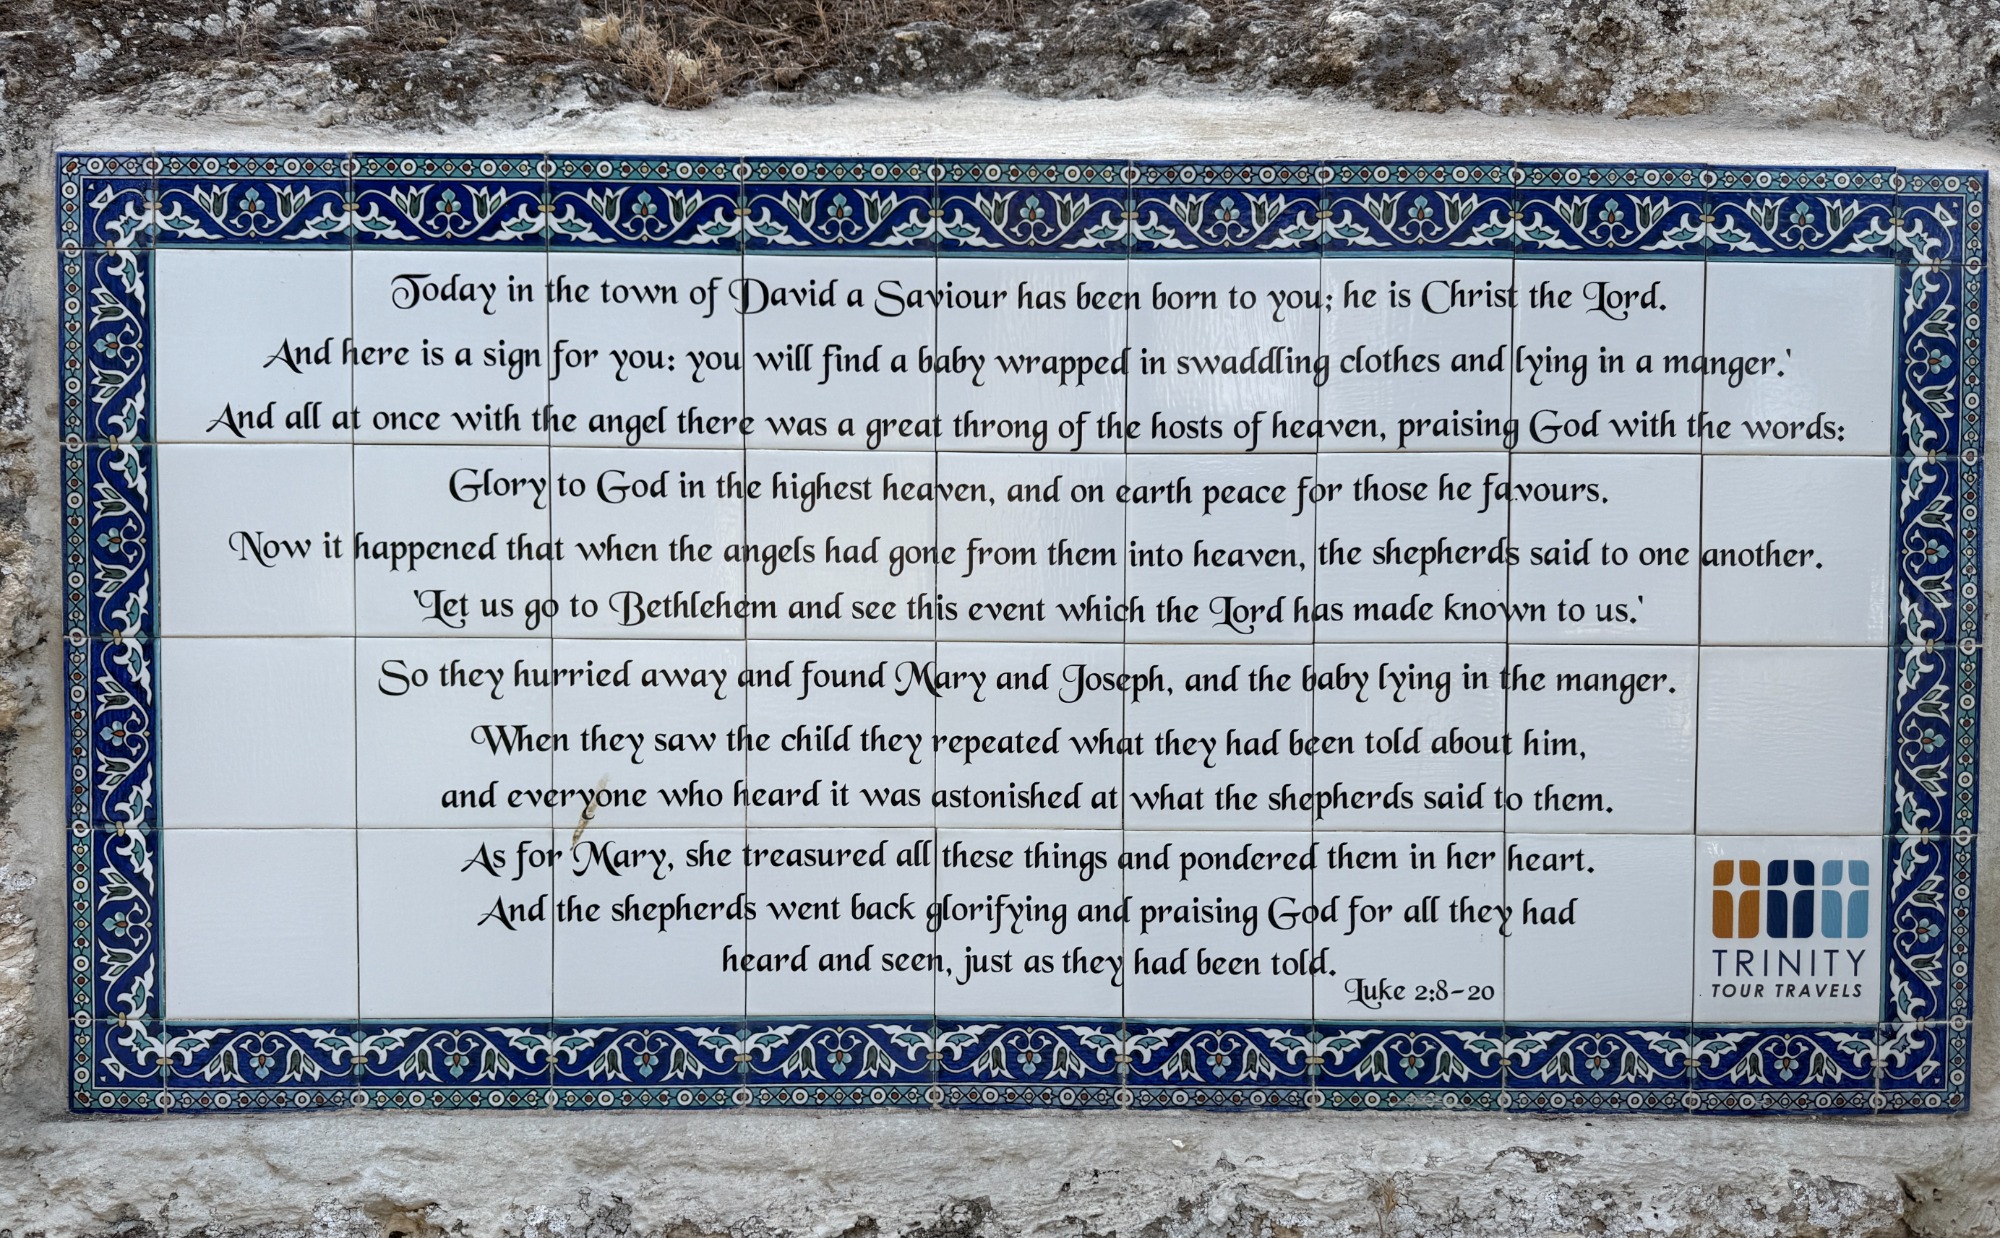 Today in the town of David a Saviour has been born to you; he is Christ the Lord.
And here is a sign for you: you will find a baby wrapped in swaddling clothes and lying in a manger.'
And all at once with the angel there was a great throng of the hosts of heaven, praising God with the words:
Glory to God in the highest heaven, and on earth peace for those he favours.
Now it happened that when the angels had gone from them into heaven, the shepherds said to one another.
'Let us go to Bethlehem and see this event which the Lord has made known to us.'
So they hurried away and found Mary and Joseph, and the baby lying in the manger.
When they saw the child they repeated what they had been told about him,
and everyone who heard it was astonished at what the shepherds said to them.
As for Mary, she treasured all these things and pondered them in her heart.
And the shepherds went back glorifying and praising God for all they had
heard and seen, just as they had been told.
Luke 2:8-20
TRINITY
TOUR TRAVELS